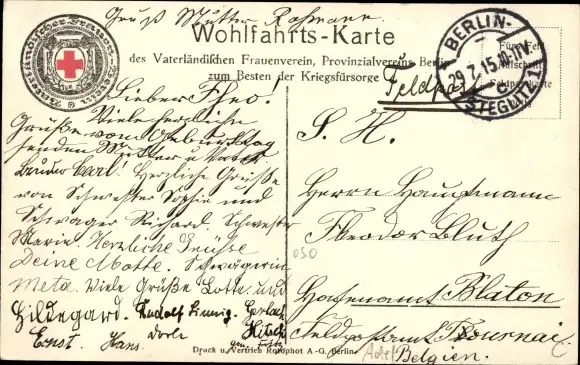 Gruß Mutter Raßmann
Wohlfahrts-Karte
des Vaterländischen Frauenverein, Provinzialverein Berlin
zum Besten der Kriegsfürsorge
Feldpost
BERLIN-
29.7.15
STEGLITZ 1
Lieber Theo!
Viele herzliche
Grüße vom Geburtstag
senden Mutter u. Vater
Bruder Carl! Herzliche Grüße
von Schwester Sophie und
Schwager Richard. Schwester
Marie. Herzliche Grüsse
Deine Motte. Schwägerin
Meta. Viele Grüße Lotte und
Hildegard. Rudolf
Ernst. Hans
S. H.
Herrn Hauptmann
Theodor Bluth
Hafenamt Blaton
Feldpostamt Tournai
Belgien.
Druck u. Vertrieb Rotophot A.-G. Berlin